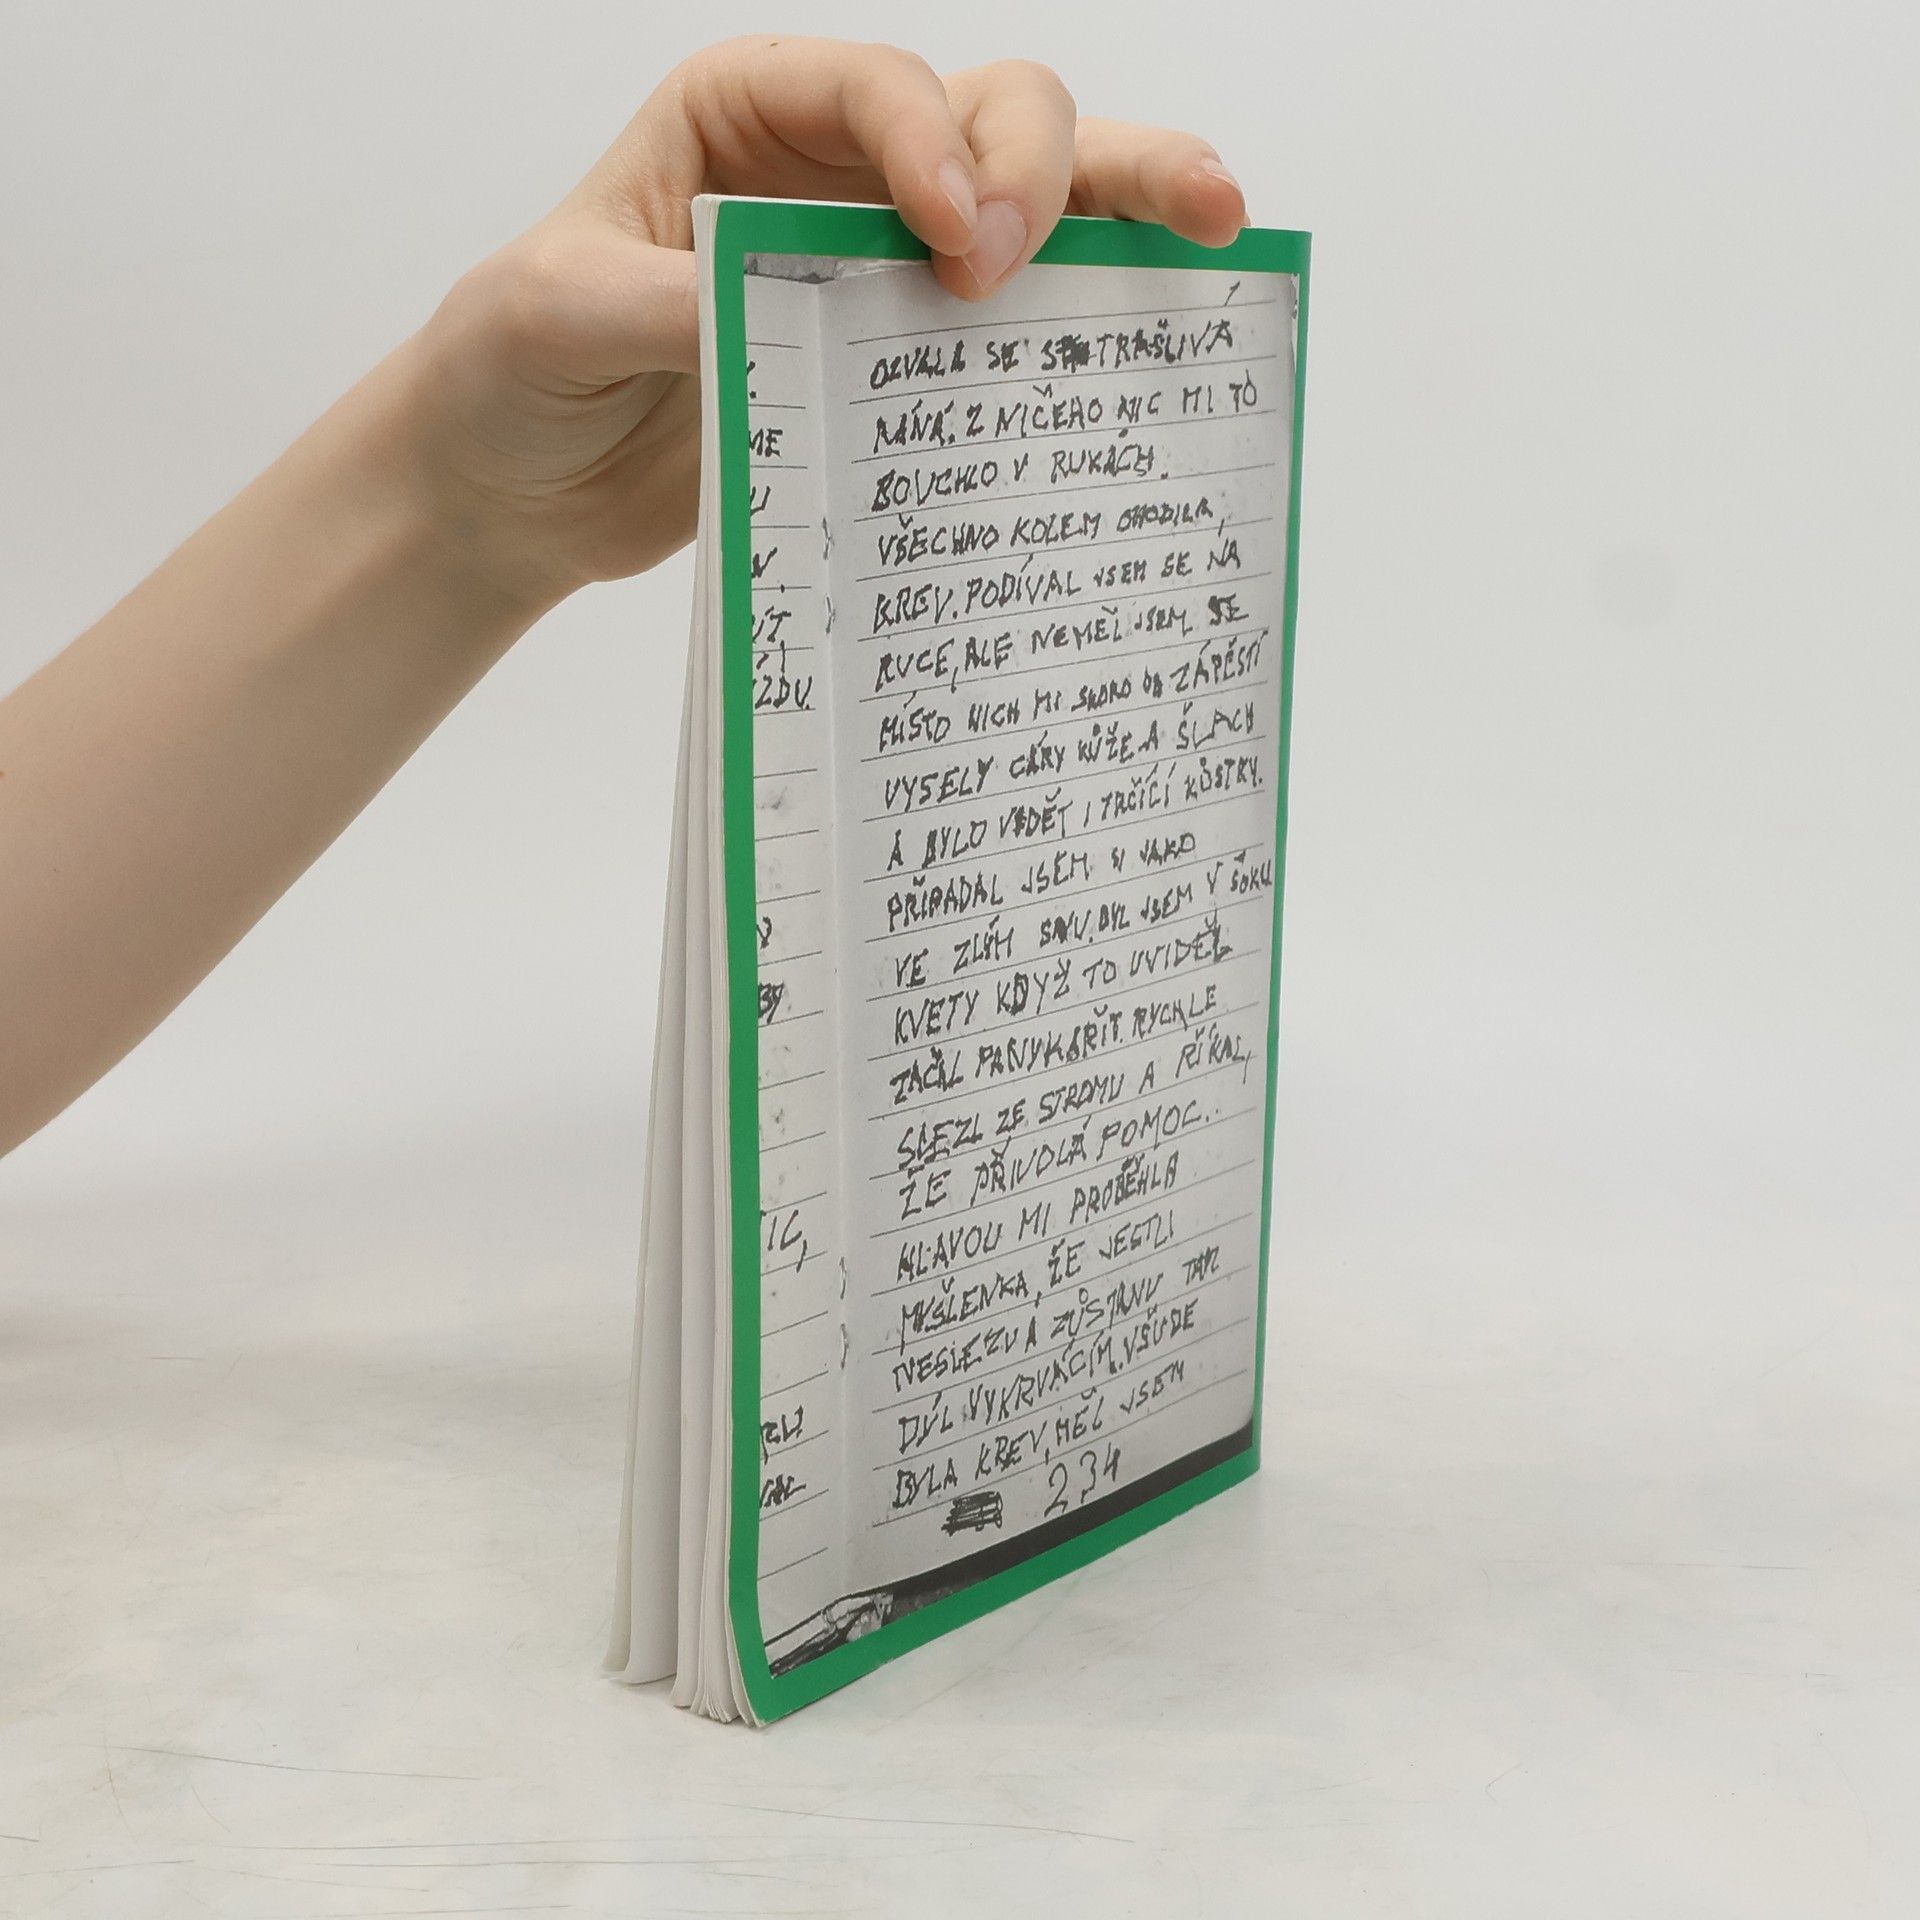 OZVALA SE STRAŠLIVÁ
RÁNÁ. Z NIČEHO NIC MI TO
BOUCHLO V RUKÁCH.
VŠECHNO KOLEM OHODILA,
KREV. PODÍVAL JSEM SE NA
RUCE, ALE NEMĚL JSEM JE
MÍSTO NICH MI SKORO OD ZÁPĚSTÍ
VYSELY CÁRY KŮŽE A ŠLACH
A BYLO VIDĚT I TRČÍCÍ KŮSTKY.
PŘÍPADAL JSEM SI JAKO
VE ZLÝM SNU. BYL JSEM V ŠOKU
KVETY KDYŽ TO UVIDĚL
ZAČAL PANYKAŘIT. RYCHLE
SLEZL ZE STROMU A ŘÍKAL,
ŽE PŘIVOLÁ POMOC..
HLAVOU MI PROBĚHLA
MYŠLENKA, ŽE JESTLI
NESLEZU A ZŮSTANU TAM
DÝL VYKRVÁCÍM. VŠUDE
BYLA KREV, MĚL JSEM
234
ME
ZDU.
BY